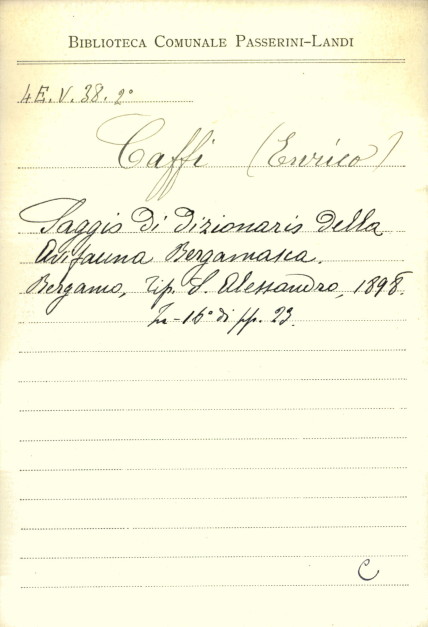 BIBLIOTECA COMUNALE PASSERINI-LANDI
4E.V.38.2°
Caffi (Enrico)
Saggio di dizionario della
Avifauna Bergamasca.
Bergamo, Tip. S. Alessandro, 1898.
In-16° di pp. 23.
C